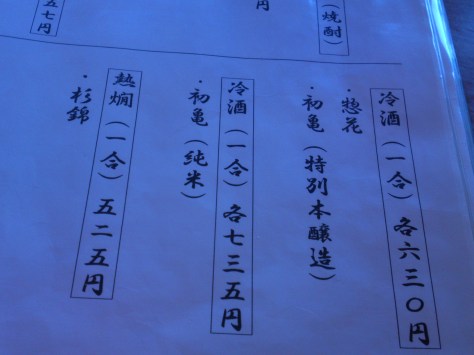 （焼酎）
円
五七円
冷酒（一合）各六三〇円
・惣花
・初亀（特別本醸造）
冷酒（一合）各七三五円
・初亀（純米）
熱燗（一合）五二五円
・杉錦